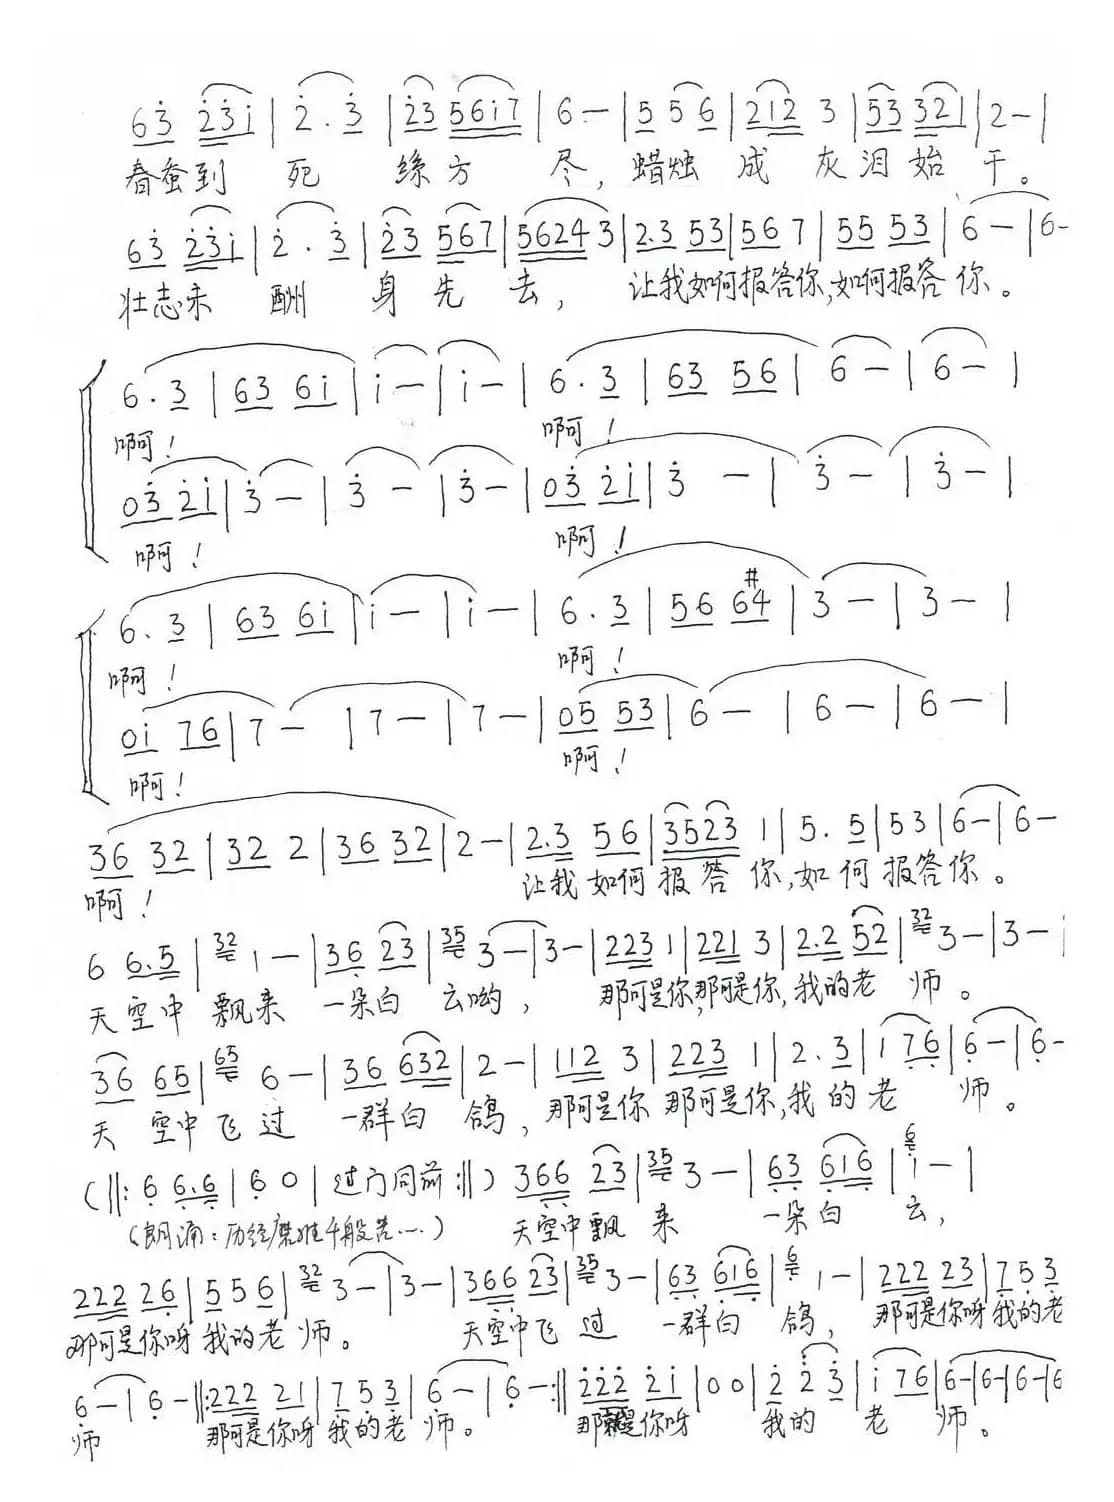 6 3̇ 2̇3̇i | 2̇ . 3̇ | 2̇3 56i7 | 6 — | 5 5 6 | 212 3 | 53 321 | 2 — |
春蚕到 死 絲方 尽, 蜡烛 成 灰泪始 干。
63̇ 2̇3̇i | 2̇ . 3̇ | 2̇3 567 | 5624 3 | 2.3 53 | 56 7 | 55 53 | 6 — | 6 -
壮志未 酬 身先 去, 让我如何报答你,如何报答 你。
6 . 3 | 63 6i | i — | i — | 6 . 3 | 63 56 | 6 — | 6 — |
啊! 啊!
03̇ 2̇i | 3̇ — | 3̇ — | 3̇ — | 03̇ 2̇i | 3̇ — | 3̇ — | 3̇ — |
啊! 啊!
6 . 3 | 63 6i | i — | i — | 6 . 3 | 56 6#4 | 3 — | 3 — |
啊! 啊!
0i 76 | 7 — | 7 — | 7 — | 05 53 | 6 — | 6 — | 6 — |
啊! 啊!
36 32 | 32 2 | 36 32 | 2 — | 2.3 56 | 3523 1 | 5. 5 | 53 | 6 — | 6 —
啊! 让我 如何报答 你,如何报答你。
6 6.5 | 32 1 — | 36 23 | 35 3 — | 3 — | 223 1 | 221 3 | 2.2 52 | 32 3 — | 3 — |
天空中 飘来 一朵白 云哟, 那可是你,那可是你,我的老 师。
36 65 | 65 6 — | 36 632 | 2 — | 112 3 | 223 1 | 2 . 3 | 1 76 | 6̣ — | 6̣ -
天 空中飞过 一群白 鸽, 那可是你 那可是你,我的老 师。
(‖: 6̣ 6̣.6̣ | 6̣ 0 | 过门同前 :‖) 366 23 | 35 3 — | 63 616 | 6 i — |
(朗诵:历经磨难千般苦……) 天空中飘 来 一朵白 云,
222 26 | 5 5 6 | 32 3 — | 3 — | 366 23 | 35 3 — | 63 616 | 6 1 — | 222 23 | 7 5 3
那可是你呀 我的老 师。 天空中飞 过 一群白 鸽, 那可是你呀 我的老
6̣ — | 6̣ — ‖: 222 21 | 7 5 3 | 6̣ — | 6̣ — :‖ 2̇2̇2̇ 2̇i | 0 0 | 2̇ 2̇ 3̇ | i 76 | 6 — | 6 — | 6 — | 6
师 那可是你呀 我的老 师。 那是你呀 我的 老 师。